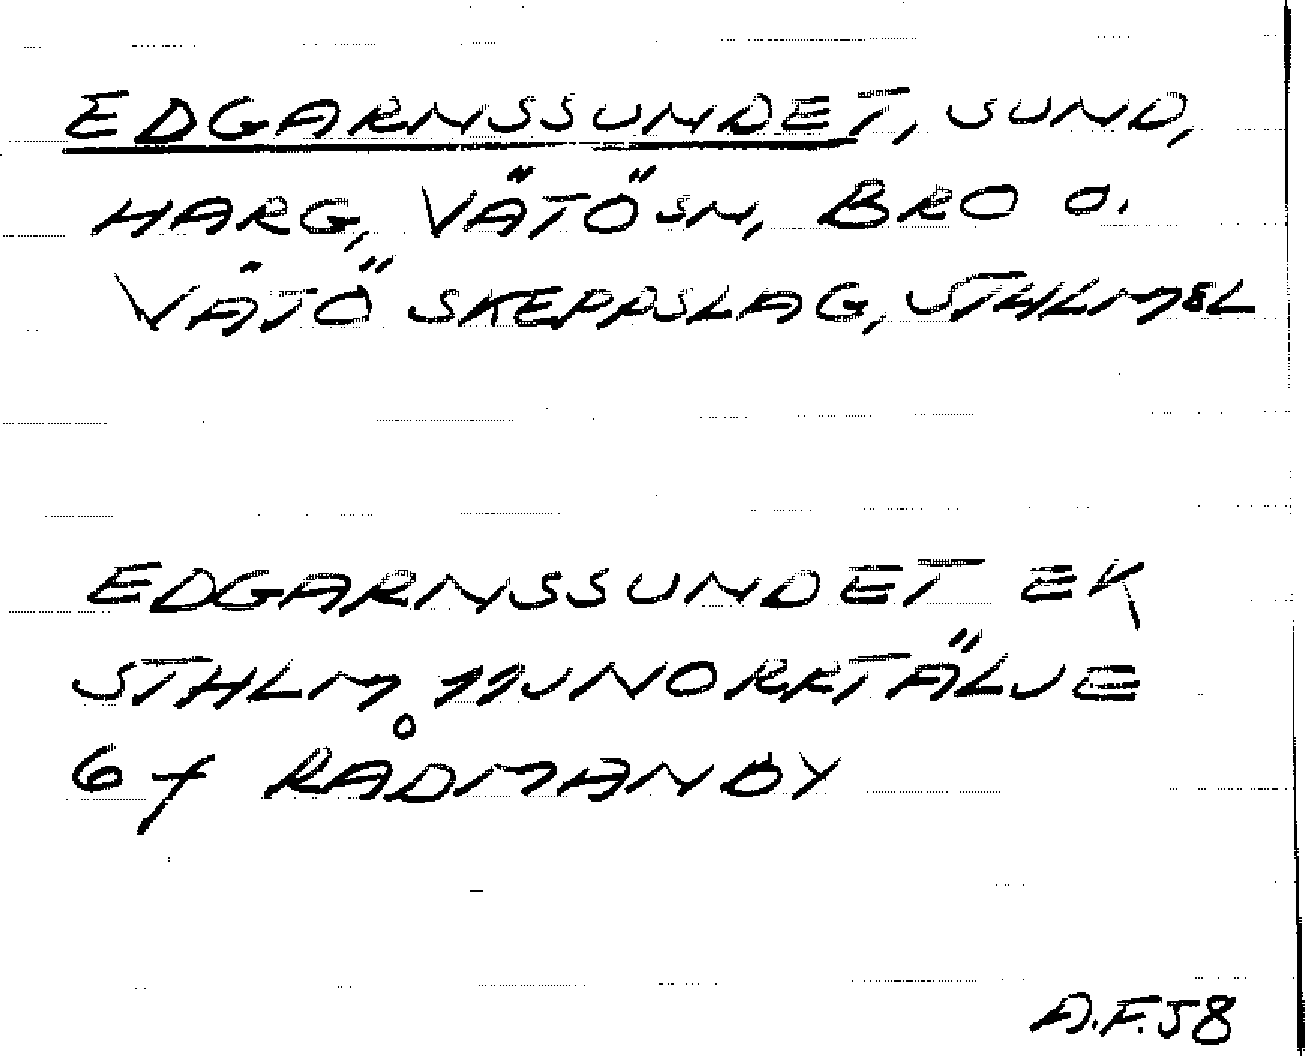 EDGARNSSUNDET, SUND,
HARG, VÄTÖSN, BRO O.
VÄTÖ SKEPPSLAG, STHLMSL
EDGARNSSUNDET EK
STHLM 11J NORRTÄLJE
6f RÅDMANBY
A.F.58